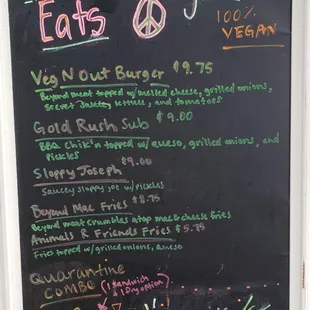 Eats
100%
VEGAN
Veg N Out Burger $9.75
Beyond meat topped w/melted cheese, grilled onions,
secret sauce, lettuce, and tomatoes
Gold Rush Sub $9.00
BBQ Chik'n topped w/queso, grilled onions, and
pickles
Sloppy Joseph $9.00
Saucey sloppy joe w/pickles
Beyond Mac Fries $8.75
Beyond meat crumbles atop mac & cheese fries
Animals R Friends Fries $5.75
Fries topped w/grilled onions, queso
Quarantine
COMBO (1 sandwich
& 1 Fry option)